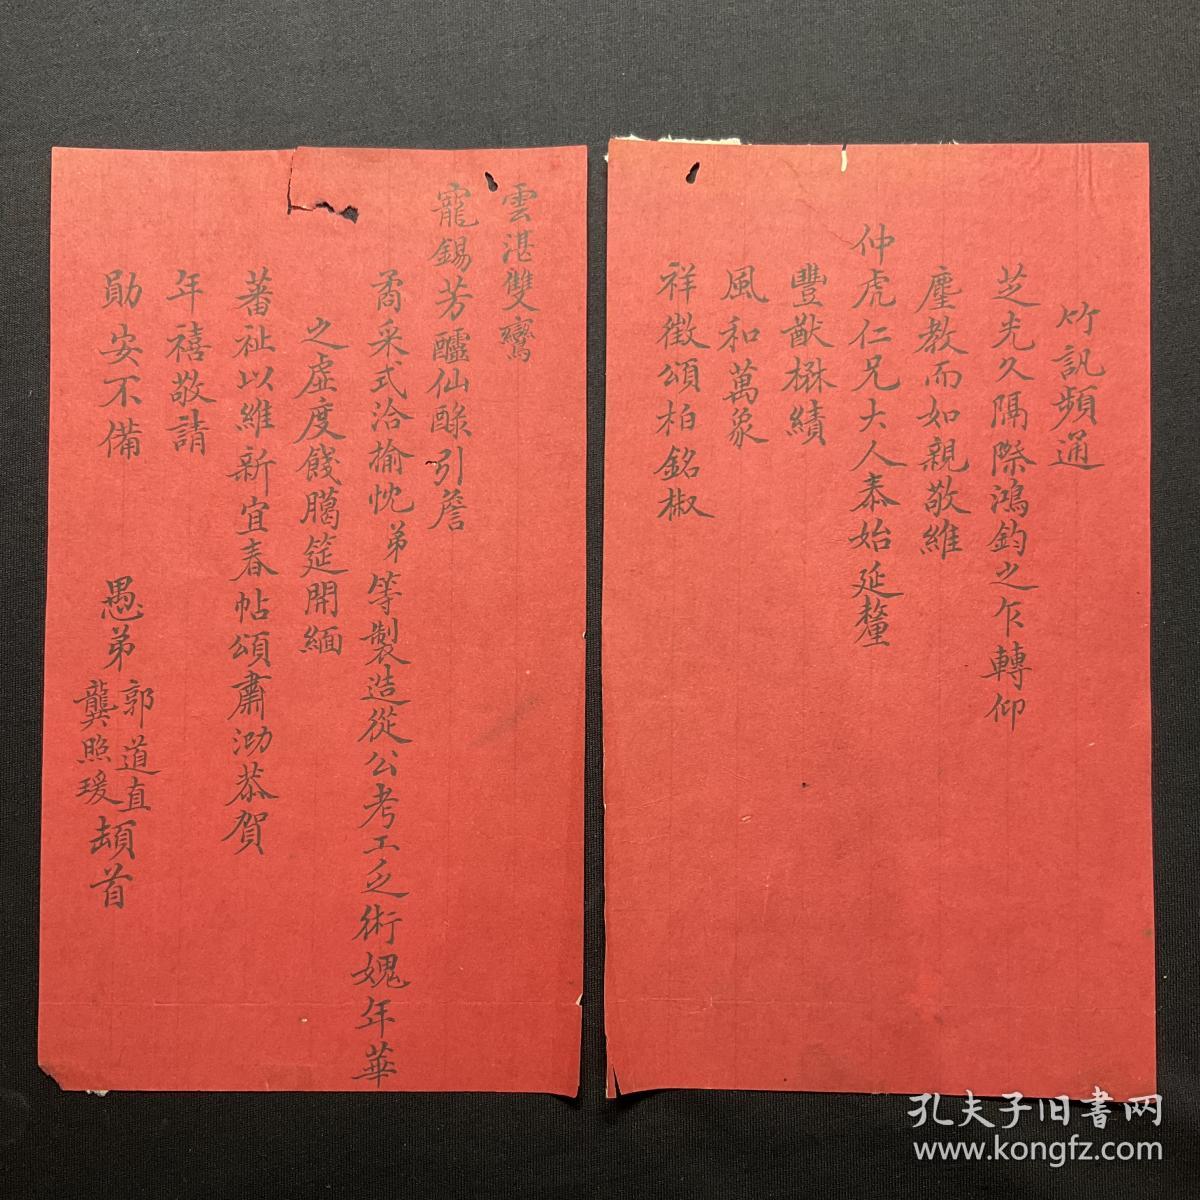 竹訊頻通
芝光久隔際鴻鈞之乍轉仰
塵教而如親敬維
仲虎仁兄大人泰始延釐
豐猷楙績
風和萬象
祥徵頌柏銘椒
雲湛雙鸞
寵錫芳醹仙醁引詹
矞采式洽揄忱弟等製造從公考工乏術媿年華
之虛度餞臈筵開緬
蕃祉以維新宜春帖頌肅泐恭賀
年禧敬請
勛安不備
愚弟郭道直龔照瑗頓首
孔夫子旧書网
www.kongfz.com